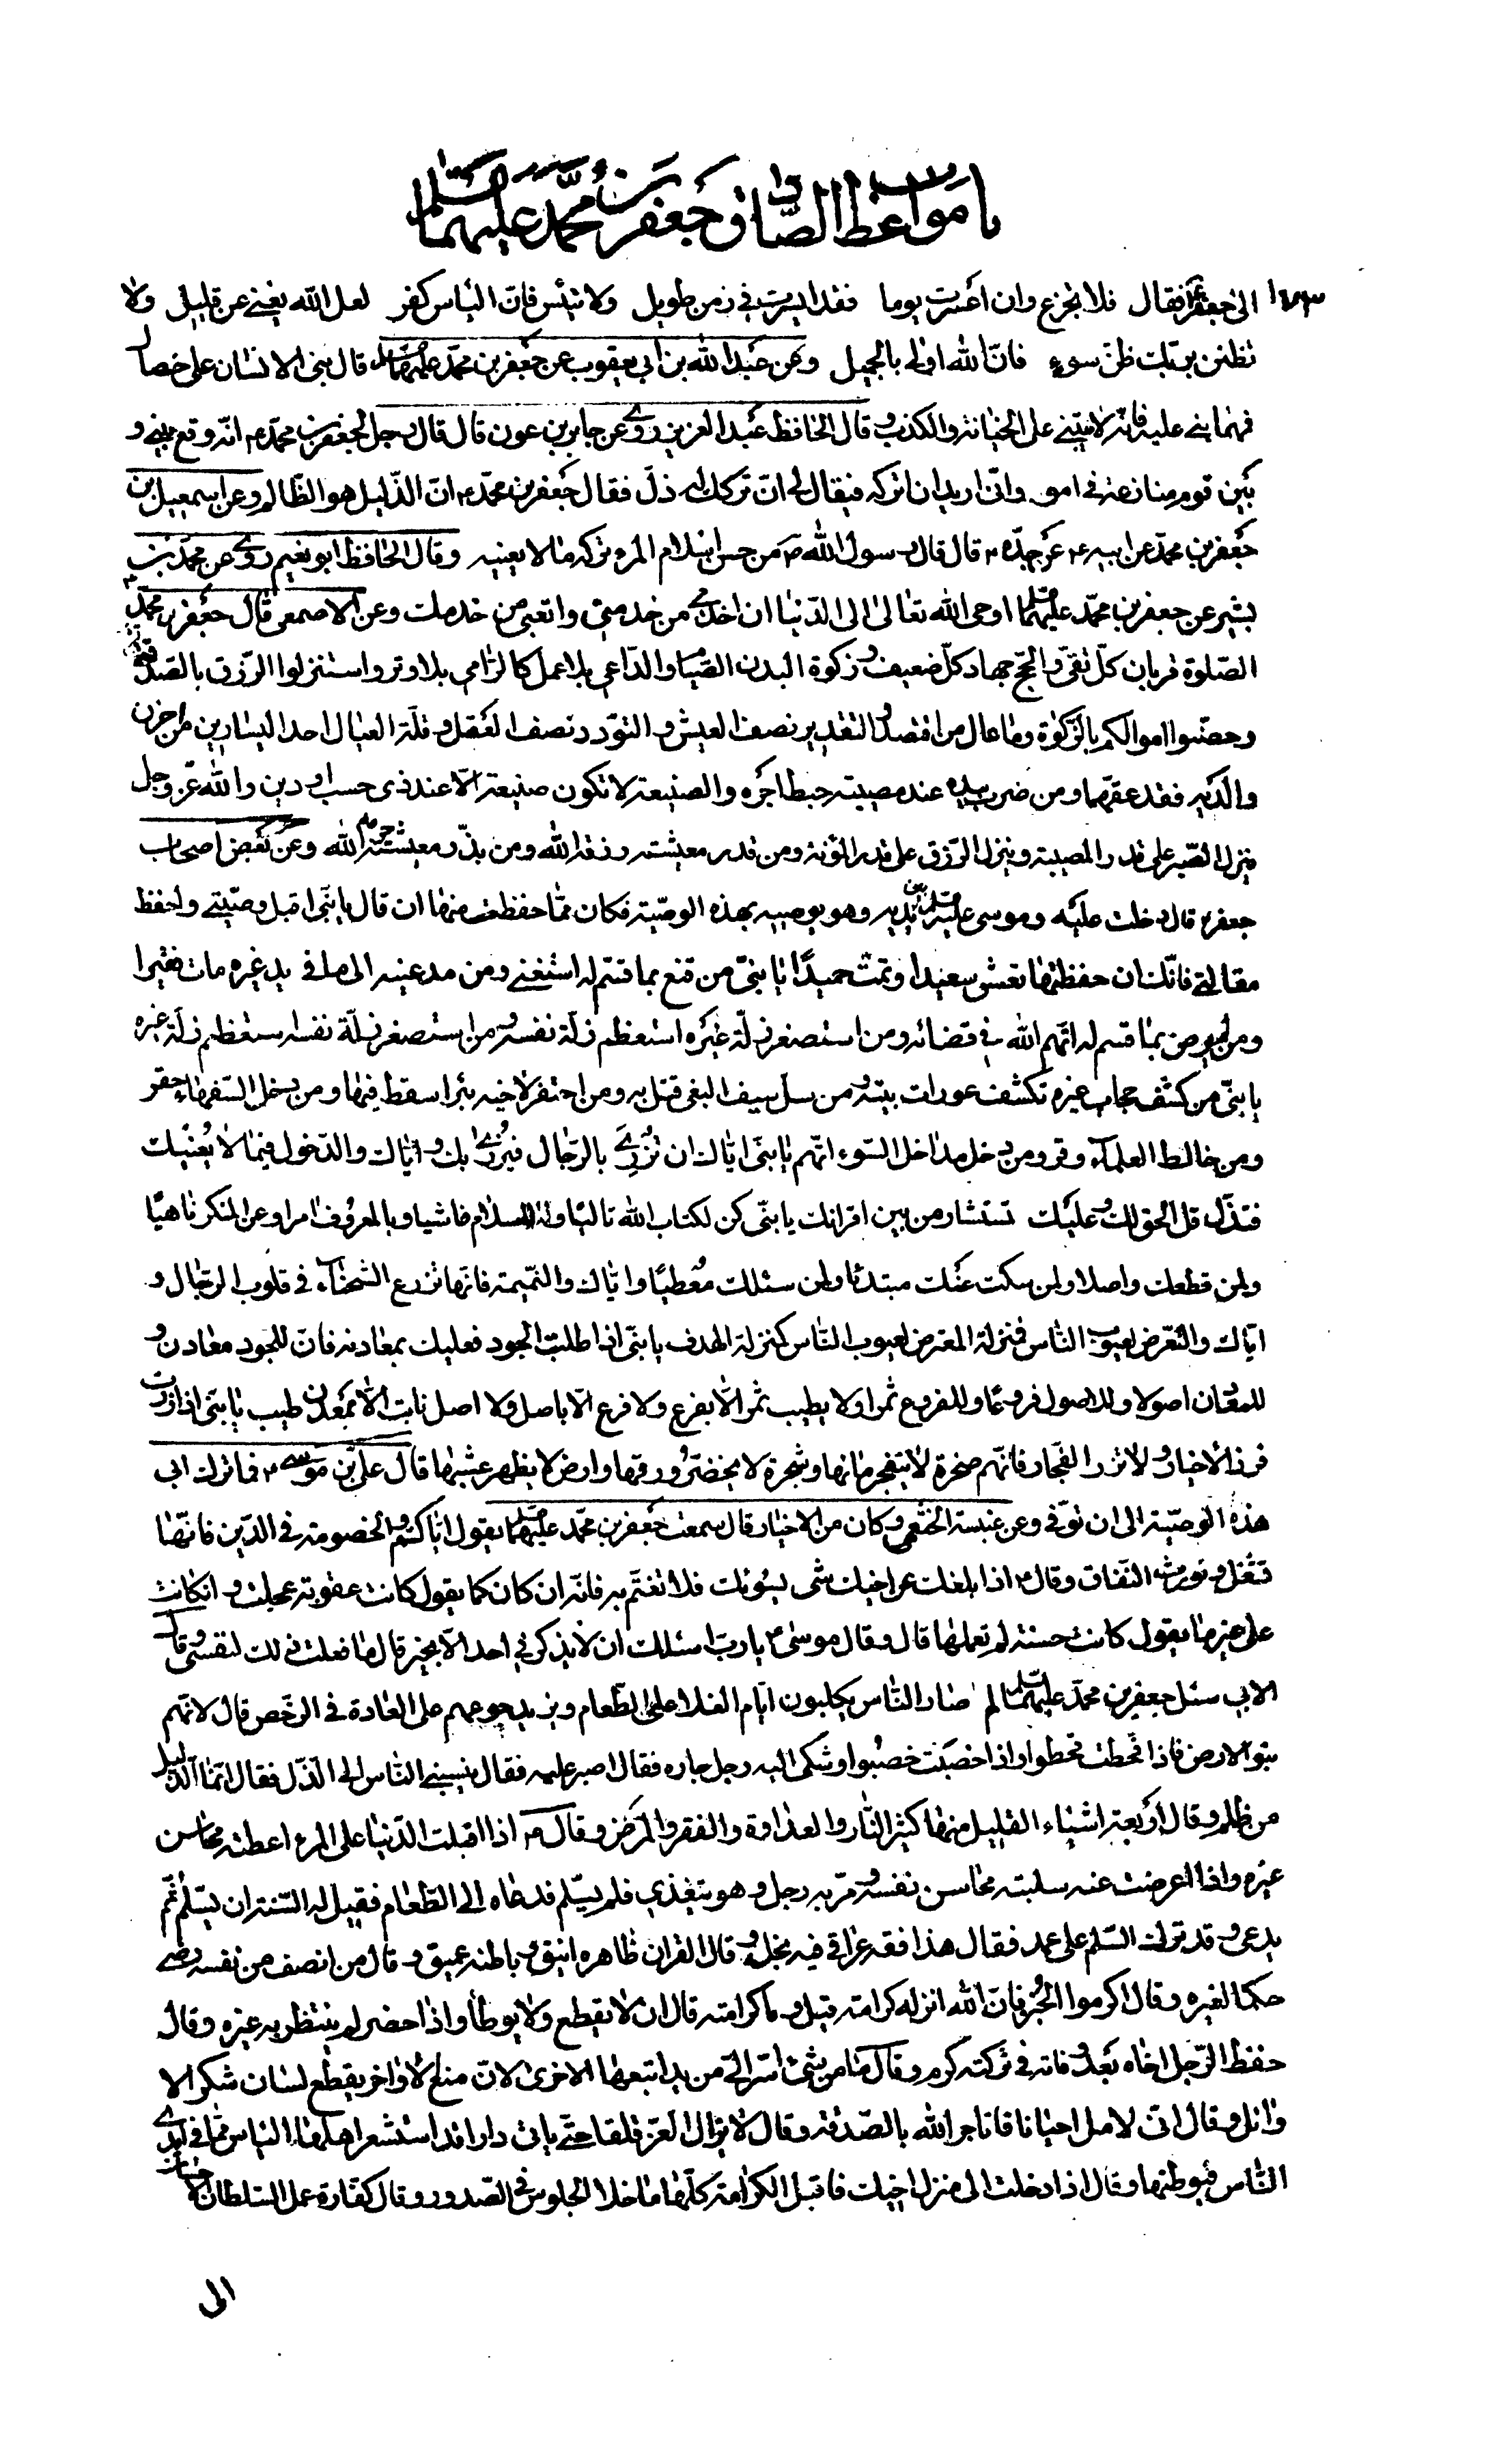 باب مواعظ الصادق جعفر بن محمد عليهما السلام
١٨٣ الى جعفر فقال فلا تجزع وان اعسرت يوما فقد ايسرت في زمن طويل ولا تيئس فان الياس كفر لعل الله يغني عن قليل ولا
تظنن بربك ظن سوء فان الله اولى بالجميل وعن عبد الله بن ابي يعقوب عن جعفر بن محمد عليهما قال بني الانسان على خصال
فمهما بني عليه فانه لا يبنى على الخيانة والكذب وقال الحافظ عبد العزيز روى عن جابر بن عون قال قال رجل لجعفر بن محمد ع انه وقع بيني و
بين قوم منازعة في امر واني اريد ان اتركه فيقال لي ان تركك له ذل فقال جعفر بن محمد ع ان الذليل هو الظالم وعن اسمعيل بن
جعفر بن محمد عن ابيه ع عن جده ع قال قال رسول الله ص من حسن اسلام المرء تركه ما لا يعنيه وقال الحافظ ابو نعيم روى عن محمد بن
بشير عن جعفر بن محمد عليهما اوحى الله تعالى الى الدنيا ان اخدمي من خدمني واتعبي من خدمك وعن الاصمعي قال جعفر بن محمد ع
الصلوة قربان كل تقي والحج جهاد كل ضعيف وزكوة البدن الصيام والداعي بلا عمل كالرامي بلا وتر واستنزلوا الرزق بالصدقة
وحصنوا اموالكم بالزكوة وما عال من اقتصد والتقدير نصف العيش والتودد نصف العقل وقلة العيال احد اليسارين من احزن
والديه فقد عقهما ومن ضرب بيده عند مصيبته حبط اجره والصنيعة لا تكون صنيعة الا عند ذي حسب او دين والله عز وجل
ينزل الصبر على قدر المصيبة وينزل الرزق على قدر المؤنة ومن قدر معيشته رزقه الله ومن بذر معيشته حرمه الله وعن بعض اصحاب
جعفر ع قال دخلت عليه وموسى عليه السلام بين يديه وهو يوصيه بهذه الوصية فكان مما حفظت منها ان قال يا بني اقبل وصيتي واحفظ
مقالتي فانك ان حفظتها تعش سعيدا وتمت حميدا يا بني من قنع بما قسم له استغنى ومن مد عينه الى ما في يد غيره مات فقيرا
ومن لم يرض بما قسم له اتهم الله في قضائه ومن استصغر زلة غيره استعظم زلة نفسه ومن استصغر زلة نفسه استعظم زلة غيره
يا بني من كشف حجاب غيره تكشف عورات بيته ومن سل سيف البغي قتل به ومن احتفر لاخيه بئرا سقط فيها ومن دخل السفهاء حقر
ومن خالط العلماء وقر ومن دخل مداخل السوء اتهم يا بني اياك ان تزري بالرجال فيزرى بك واياك والدخول فيما لا يعنيك
فتذل قل الحق لك وعليك تستشار من بين اقرانك يا بني كن لكتاب الله تاليا وللسلام فاشيا وبالمعروف امرا وعن المنكر ناهيا
ولمن قطعك واصلا ولمن سكت عنك مبتدئا ولمن سئلك معطيا واياك والنميمة فانها تزرع الشحناء في قلوب الرجال و
اياك والتعرض لعيوب الناس فمنزلة المعترض لعيوب الناس كمنزلة الهدف يا بني اذا طلبت الجود فعليك بمعادنه فان للجود معادن و
للمعادن اصولا وللاصول فروعا وللفروع ثمرا ولا يطيب ثمر الا بفرع ولا فرع الا باصل ولا اصل ثابت الا بمعدن طيب يا بني اذا زرت
فزر الاخيار ولا تزر الفجار فانهم صخرة لا يتفجر مائها وشجرة لا يخضر ورقها وارض لا يظهر عشبها قال علي بن موسى ع فما ترك ابي
هذه الوصية الى ان توفي وعن عنبسة الخثعمي وكان من الاخيار قال سمعت جعفر بن محمد عليهما يقول اياكم والخصومة في الدين فانها
تشغل وتورث النفاق وقال ع اذا بلغك عن اخيك شئ يسوئك فلا تغتم به فانه ان كان كما يقول كانت عقوبة عجلت وان كانت
على غير ما يقول كانت حسنة لم تعملها قال وقال موسى ع يا رب اسئلك ان لا يذكرني احد الا بخير قال ما فعلت ذلك لنفسي وقال
الابي سئل جعفر بن محمد عليهما لم صار الناس يكلبون ايام الغلا على الطعام ويزيد جوعهم على العادة في الرخص قال لانهم
بنو الارض فاذا قحطت قحطوا واذا اخصبت خصبوا وشكى اليه رجل جاره فقال اصبر عليه فقال ينسبني الناس الى الذل فقال انما الذليل
من ظلم وقال اربعة اشياء القليل منها كثير النار والعداوة والفقر والمرض وقال ع اذا اقبلت الدنيا على المرء اعطته محاسن
غيره واذا اعرضت عنه سلبته محاسن نفسه ومر به رجل وهو يتغذى فلم يسلم فدعاه الى الطعام فقيل له السنة ان يسلم ثم
يدعى وقد ترك السلم على عمد فقال هذا فقه عراقي فيه بخل وقال القران ظاهره انيق وباطنه عميق وقال من انصف من نفسه رضي
حكما لغيره وقال اكرموا الخبز فان الله انزل له كرامة قيل وما كرامته قال ان لا يقطع ولا يوطأ واذا حضر لم ينتظر به غيره وقال
حفظ الرجل اخاه بعد وفاته في تركته كرم وقال ما من شئ اسر الي من يد اتبعها الاخرى لان منع الاواخر يقطع لسان شكر الا
وائل وقال اني لاملق احيانا فاتاجر الله بالصدقة وقال لا يزال العز قلقا حتى ياتي دارا قد استشعر اهلها الياس مما في ايدي
الناس فيوطنها وقال اذا دخلت الى منزل اخيك فاقبل الكرامة كلها ما خلا الجلوس في الصدور وقال كفارة عمل السلطان الاحسان
الى